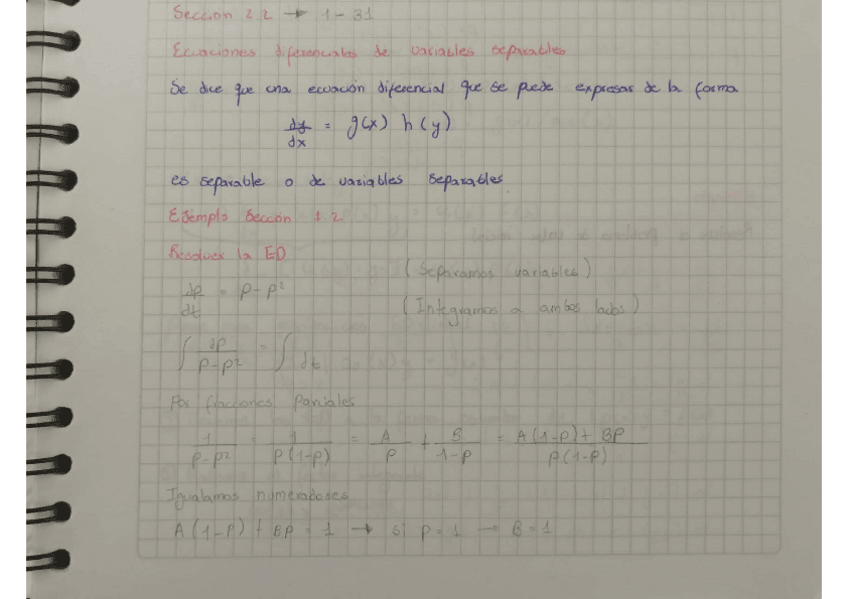 Sección 2.2 → 1 - 31
Ecuaciones diferenciales de variables separables
Se dice que una ecuación diferencial que se puede expresar de la forma
dy/dx = g(x) h(y)
es separable o de variables separables
Ejemplo Sección 1.2
Resolver la ED
(Separamos variables)
dp/dt = p - p²
(Integramos a ambos lados)
∫ dp/(p-p²) = ∫ dt
Por fracciones parciales
1/(p-p²) = 1/(p(1-p)) = A/p + B/(1-p) = (A(1-p) + Bp)/(p(1-p))
Igualamos numeradores
A(1-p) + Bp = 1 → si p = 1 → B = 1